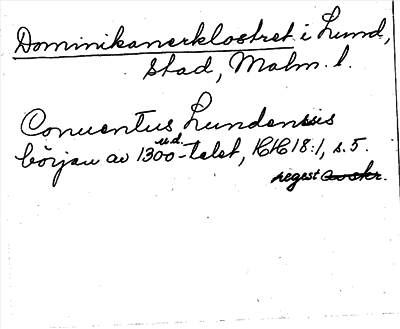 Dominikanerklostret i Lund,
stad, Malm. l.
Conventus Lundensis
u.d.
början av 1300-talet, KHC 18:1, s. 5.
regest avskr.